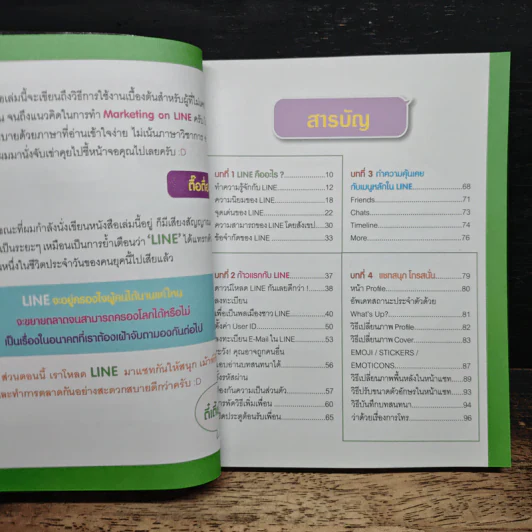 เล่มนี้จะเขียนถึงวิธีการใช้งานเบื้องต้นสำหรับผู้ที่ไม่เคย
จนถึงแนวคิดในการทำ Marketing on LINE ครับ
บายด้วยภาษาที่อ่านเข้าใจง่าย ไม่เน้นภาษาวิชาการ
มมานั่งจับเข่าคุยไปชี้หน้าจอคุณไปเลยครับ :D
ขณะที่ผมกำลังนั่งเขียนหนังสือเล่มนี้อยู่ ก็มีเสียงสัญญาณ
เป็นระยะๆ เหมือนเป็นการย้ำเตือนว่า 'LINE' ได้แทรก
หนึ่งในชีวิตประจำวันของคนยุคนี้ไปเสียแล้ว
LINE จะอยู่ครองใจผู้คนได้นานแค่ไหน
จะขยายตลาดจนสามารถครองโลกได้หรือไม่
เป็นเรื่องในอนาคตที่เราต้องเฝ้าจับตามองกันต่อไป
ส่วนตอนนี้ เราโหลด LINE มาแชทกันให้สนุก
และทำการตลาดกันอย่างสะดวกสบายดีกว่าครับ :D
สารบัญ
บทที่ 1 LINE คืออะไร ? 10
ทำความรู้จักกับ LINE 12
ความนิยมของ LINE 18
จุดเด่นของ LINE 22
ความสามารถของ LINE โดยสังเขป 30
ข้อจำกัดของ LINE 33
บทที่ 2 ก้าวแรกกับ LINE 37
ดาวน์โหลด LINE กันเลยดีกว่า ! 38
ลงทะเบียน
เพื่อเป็นพลเมืองชาว LINE 40
ตั้งค่า User ID 50
ลงทะเบียน E-Mail ใน LINE 53
ระวัง! คุณอาจถูกคนอื่น
แอบอ่านบทสนทนาได้ 56
ตั้งรหัสผ่าน
เพื่อความเป็นส่วนตัว 57
สารพัดวิธีเพิ่มเพื่อน 60
เปิดประตูต้อนรับเพื่อน 65
บทที่ 3 ทำความคุ้นเคย
กับเมนูหลักใน LINE 68
Friends 71
Chats 73
Timeline 74
More 76
บทที่ 4 แชทสนุก โทรสนั่น 79
หน้า Profile 80
อัพเดทสถานะประจำตัวด้วย
What's Up? 81
วิธีเปลี่ยนภาพ Profile 82
วิธีเปลี่ยนภาพ Cover 83
EMOJI / STICKERS /
EMOTICONS 87
วิธีเปลี่ยนภาพพื้นหลังในหน้าแชท 89
วิธีปรับขนาดตัวอักษรในหน้าแชท 93
วิธีบันทึกบทสนทนา 94
ว่าด้วยเรื่องการโทร 96